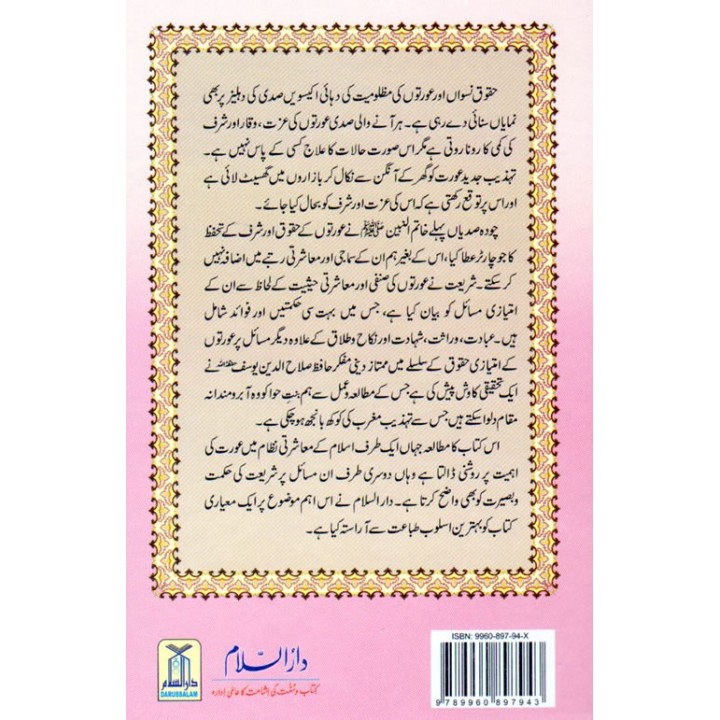 حقوق نسواں اور عورتوں کی مظلومیت کی دہائی اکیسویں صدی کی دہلیز پر بھی
نمایاں سنائی دے رہی ہے۔ ہر آنے والی صدی عورتوں کی عزت، وقار اور شرف
کی کمی کا رونا روتی ہے مگر اس صورت حالات کا علاج کسی کے پاس نہیں ہے۔
تہذیب جدید عورت کو گھر کے آنگن سے نکال کر بازاروں میں گھسیٹ لائی ہے
اور اس پر توقع رکھتی ہے کہ اس کی عزت اور شرف کو بحال کیا جائے۔
چودہ صدیاں پہلے خاتم النبیین ﷺ نے عورتوں کے حقوق اور شرف کے تحفظ
کا جو چارٹر عطا کیا، اس کے بغیر ہم ان کے سماجی اور معاشرتی رتبے میں اضافہ نہیں
کر سکتے۔ شریعت نے عورتوں کی صنفی اور معاشرتی حیثیت کے لحاظ سے ان کے
امتیازی مسائل کو بیان کیا ہے، جس میں بہت سی حکمتیں اور فوائد شامل
ہیں۔ عبادت، وراثت، شہادت اور نکاح و طلاق کے علاوہ دیگر مسائل پر عورتوں
کے امتیازی حقوق کے سلسلے میں ممتاز دینی مفکر حافظ صلاح الدین یوسف نے
ایک تحقیقی کاوش پیش کی ہے جس کے مطالعہ و عمل سے ہم بنتِ حوا کو وہ آبرومندانہ
مقام دلوا سکتے ہیں جس سے تہذیب مغرب کی کوکھ بانجھ ہو چکی ہے۔
اس کتاب کا مطالعہ جہاں ایک طرف اسلام کے معاشرتی نظام میں عورت کی
اہمیت پر روشنی ڈالتا ہے وہاں دوسری طرف ان مسائل پر شریعت کی حکمت
و بصیرت کو بھی واضح کرتا ہے۔ دارالسلام نے اس اہم موضوع پر ایک معیاری
کتاب کو بہترین اسلوب طباعت سے آراستہ کیا ہے۔
دارالسلام
DARUSSALAM
دارالسلام
کتاب و سنت کی اشاعت کا عالمی ادارہ
ISBN: 9960-897-94-X
9 789960 897943